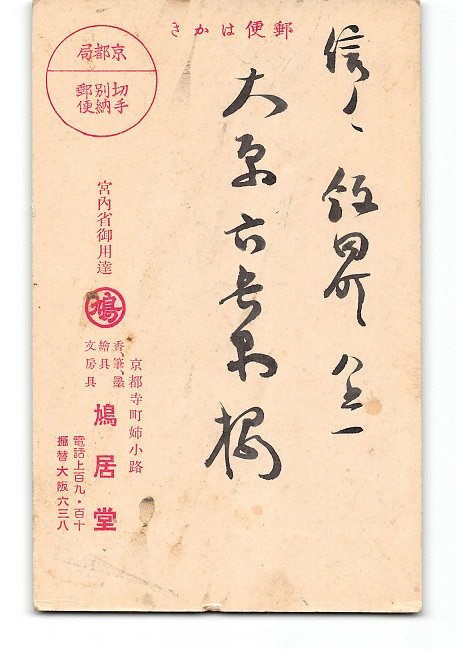 郵便はかき
信 飯田町
大原 様
京都局
切手
別納
郵便
宮内省御用達
鳩
京都寺町姉小路
香、筆、墨
繪具
文房具
鳩居堂
電話上百九・百十
振替大阪六三八